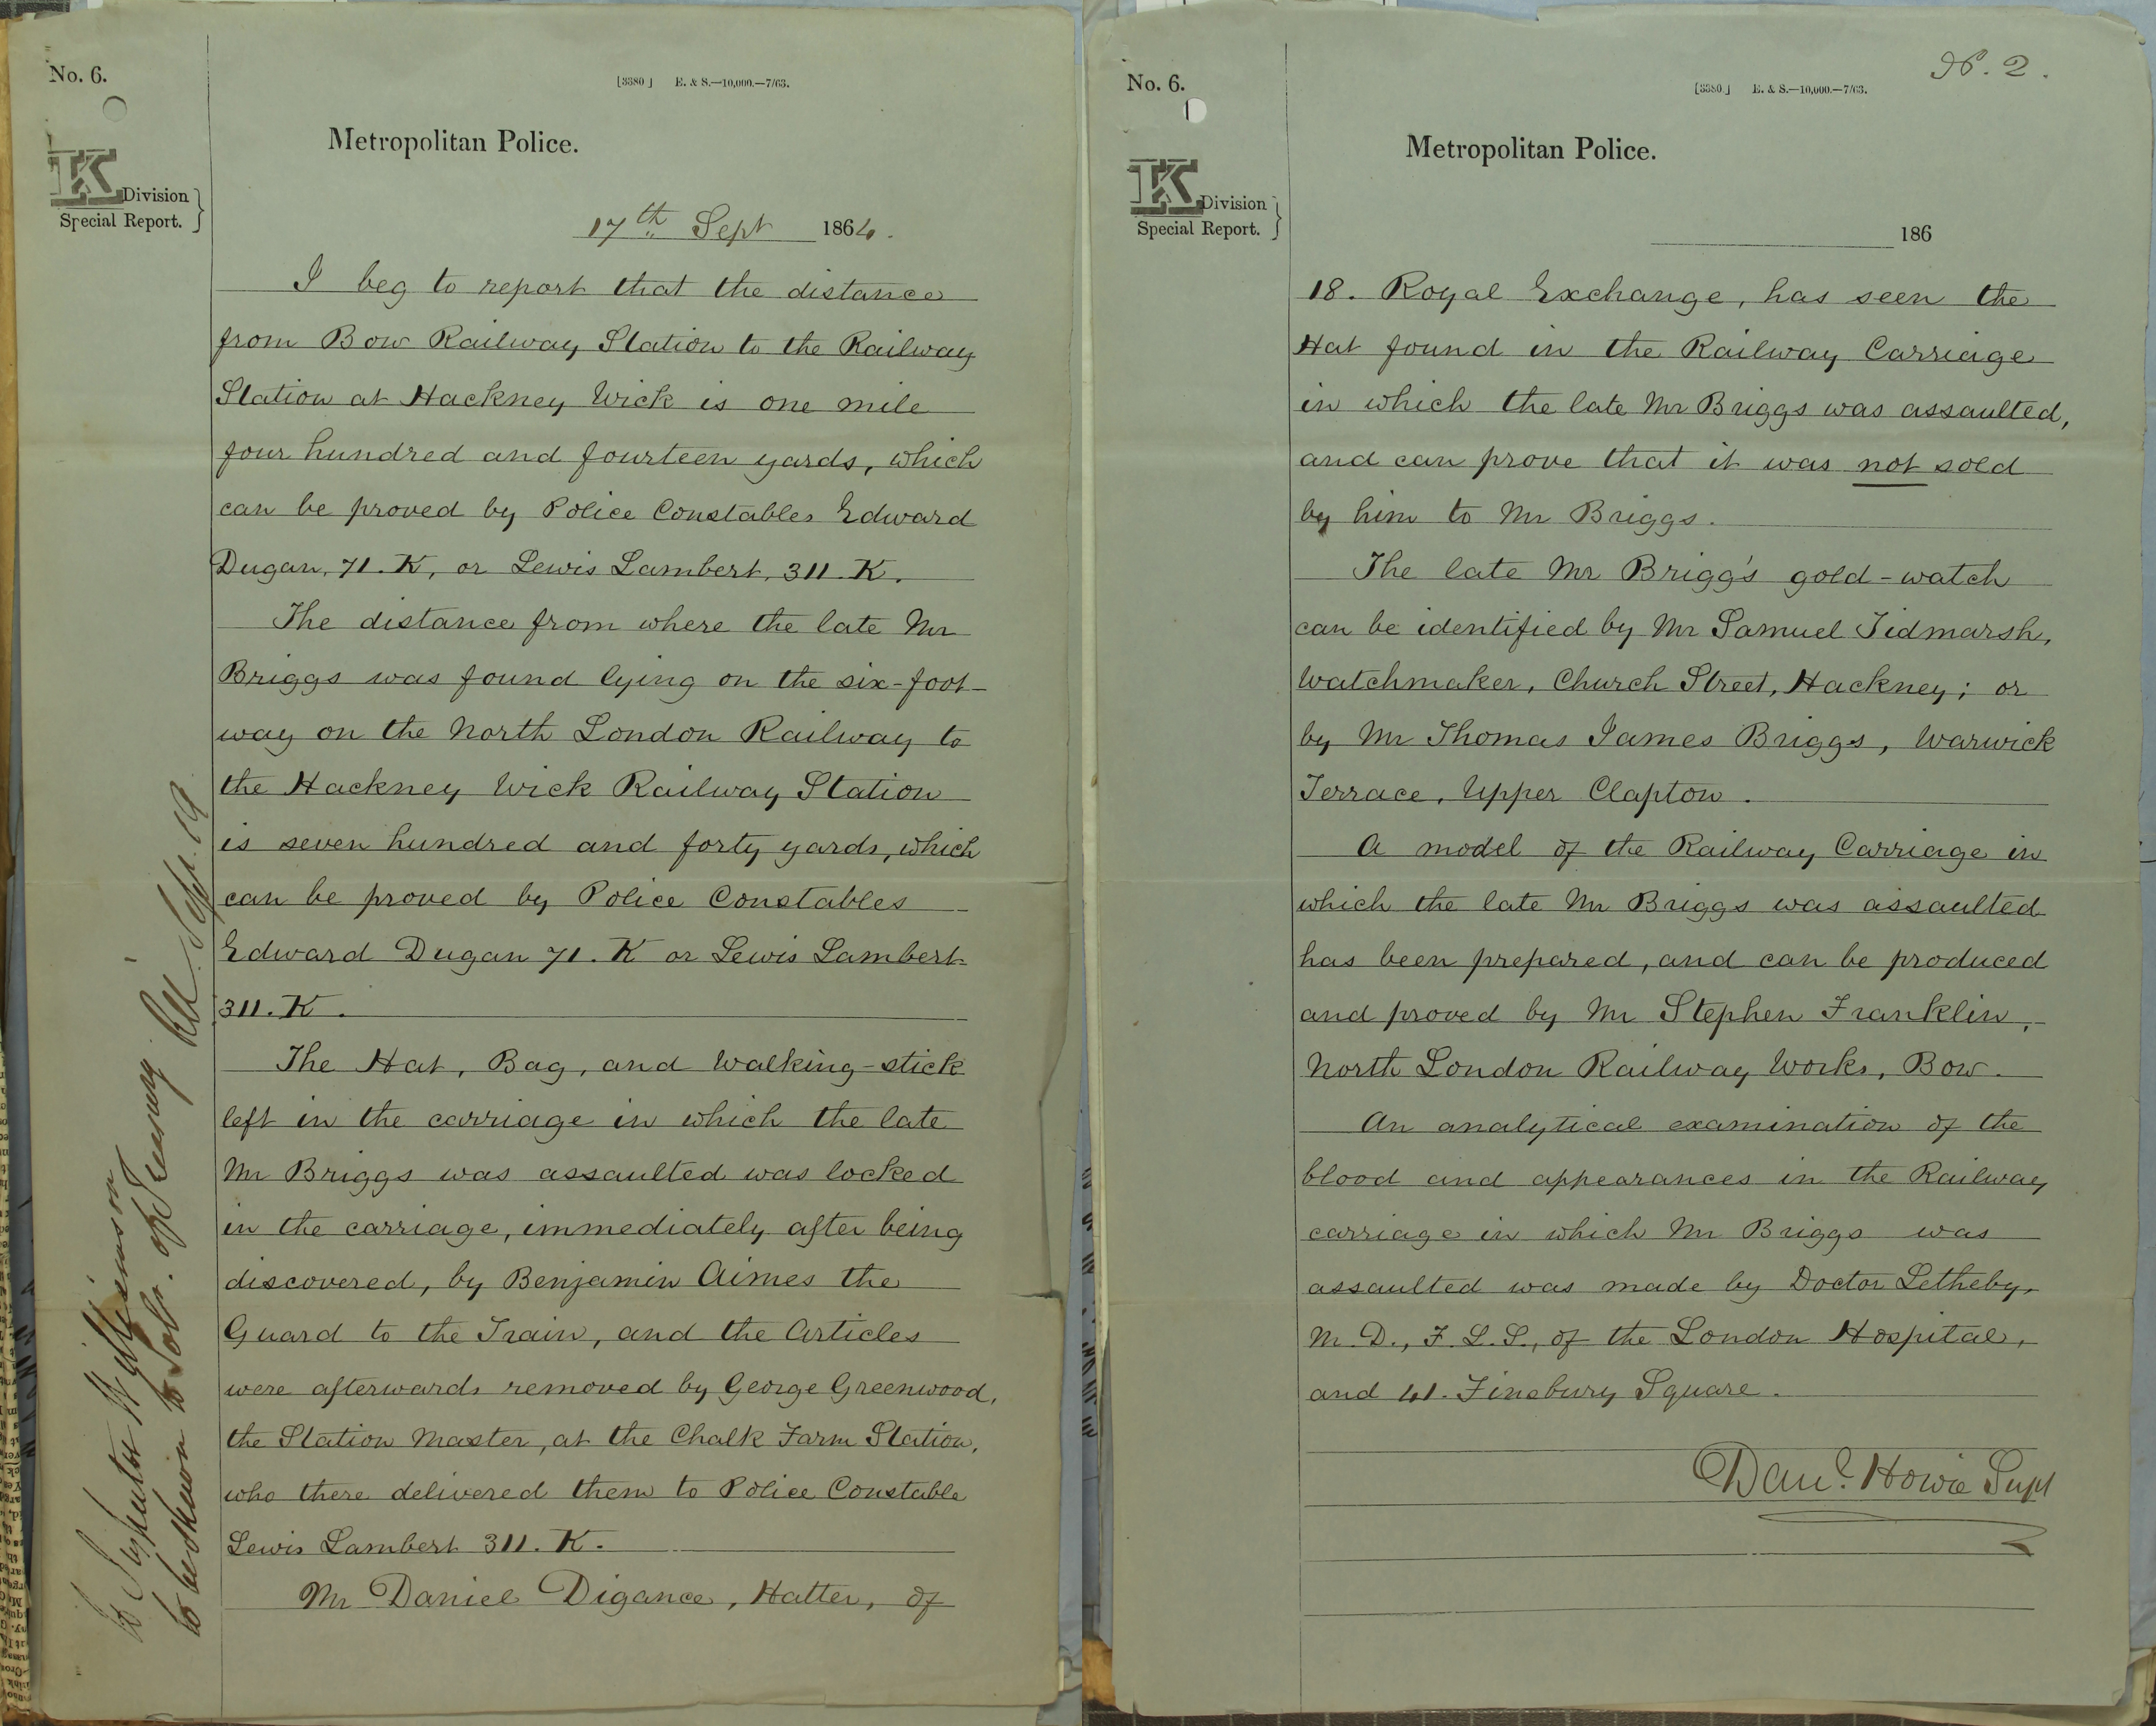 No. 6.
[3380] E. & S.—10,000.—7/63.
Metropolitan Police.
K Division
Special Report. }
17th Sept 1864.
I beg to report that the distance
from Bow Railway Station to the Railway
Station at Hackney Wick is one mile
four hundred and fourteen yards, which
can be proved by Police Constables Edward
Dugan, 71. K, or Lewis Lambert, 311. K.
The distance from where the late Mr
Briggs was found lying on the six-foot-
way on the North London Railway to
the Hackney Wick Railway Station
is seven hundred and forty yards, which
can be proved by Police Constables
Edward Dugan 71. K or Lewis Lambert
311. K.
The Hat, Bag, and Walking-stick
left in the carriage in which the late
Mr Briggs was assaulted was locked
in the carriage, immediately after being
discovered, by Benjamin Aimes the
Guard to the Train, and the Articles
were afterwards removed by George Greenwood,
the Station Master, at the Chalk Farm Station,
who there delivered them to Police Constable
Lewis Lambert 311. K.
Mr Daniel Digance, Hatter, of
To Inspector Williamson
to be shewn to Solr. of Treasury Sept. 19
No. 6.
2.
[3380] E. & S.—10,000.—7/63.
Metropolitan Police.
K Division
Special Report. }
186
18. Royal Exchange, has seen the
Hat found in the Railway Carriage
in which the late Mr Briggs was assaulted,
and can prove that it was not sold
by him to Mr Briggs.
The late Mr Brigg's gold-watch
can be identified by Mr Samuel Tidmarsh,
Watchmaker, Church Street, Hackney; or
by Mr Thomas James Briggs, Warwick
Terrace, Upper Clapton.
A model of the Railway Carriage in
which the late Mr Briggs was assaulted
has been prepared, and can be produced
and proved by Mr Stephen Franklin,
North London Railway Works, Bow.
An analytical examination of the
blood and appearances in the Railway
carriage in which Mr Briggs was
assaulted was made by Doctor Letheby,
M.D., F.L.S., of the London Hospital,
and 41. Finsbury Square.
Danl. Howie Supt